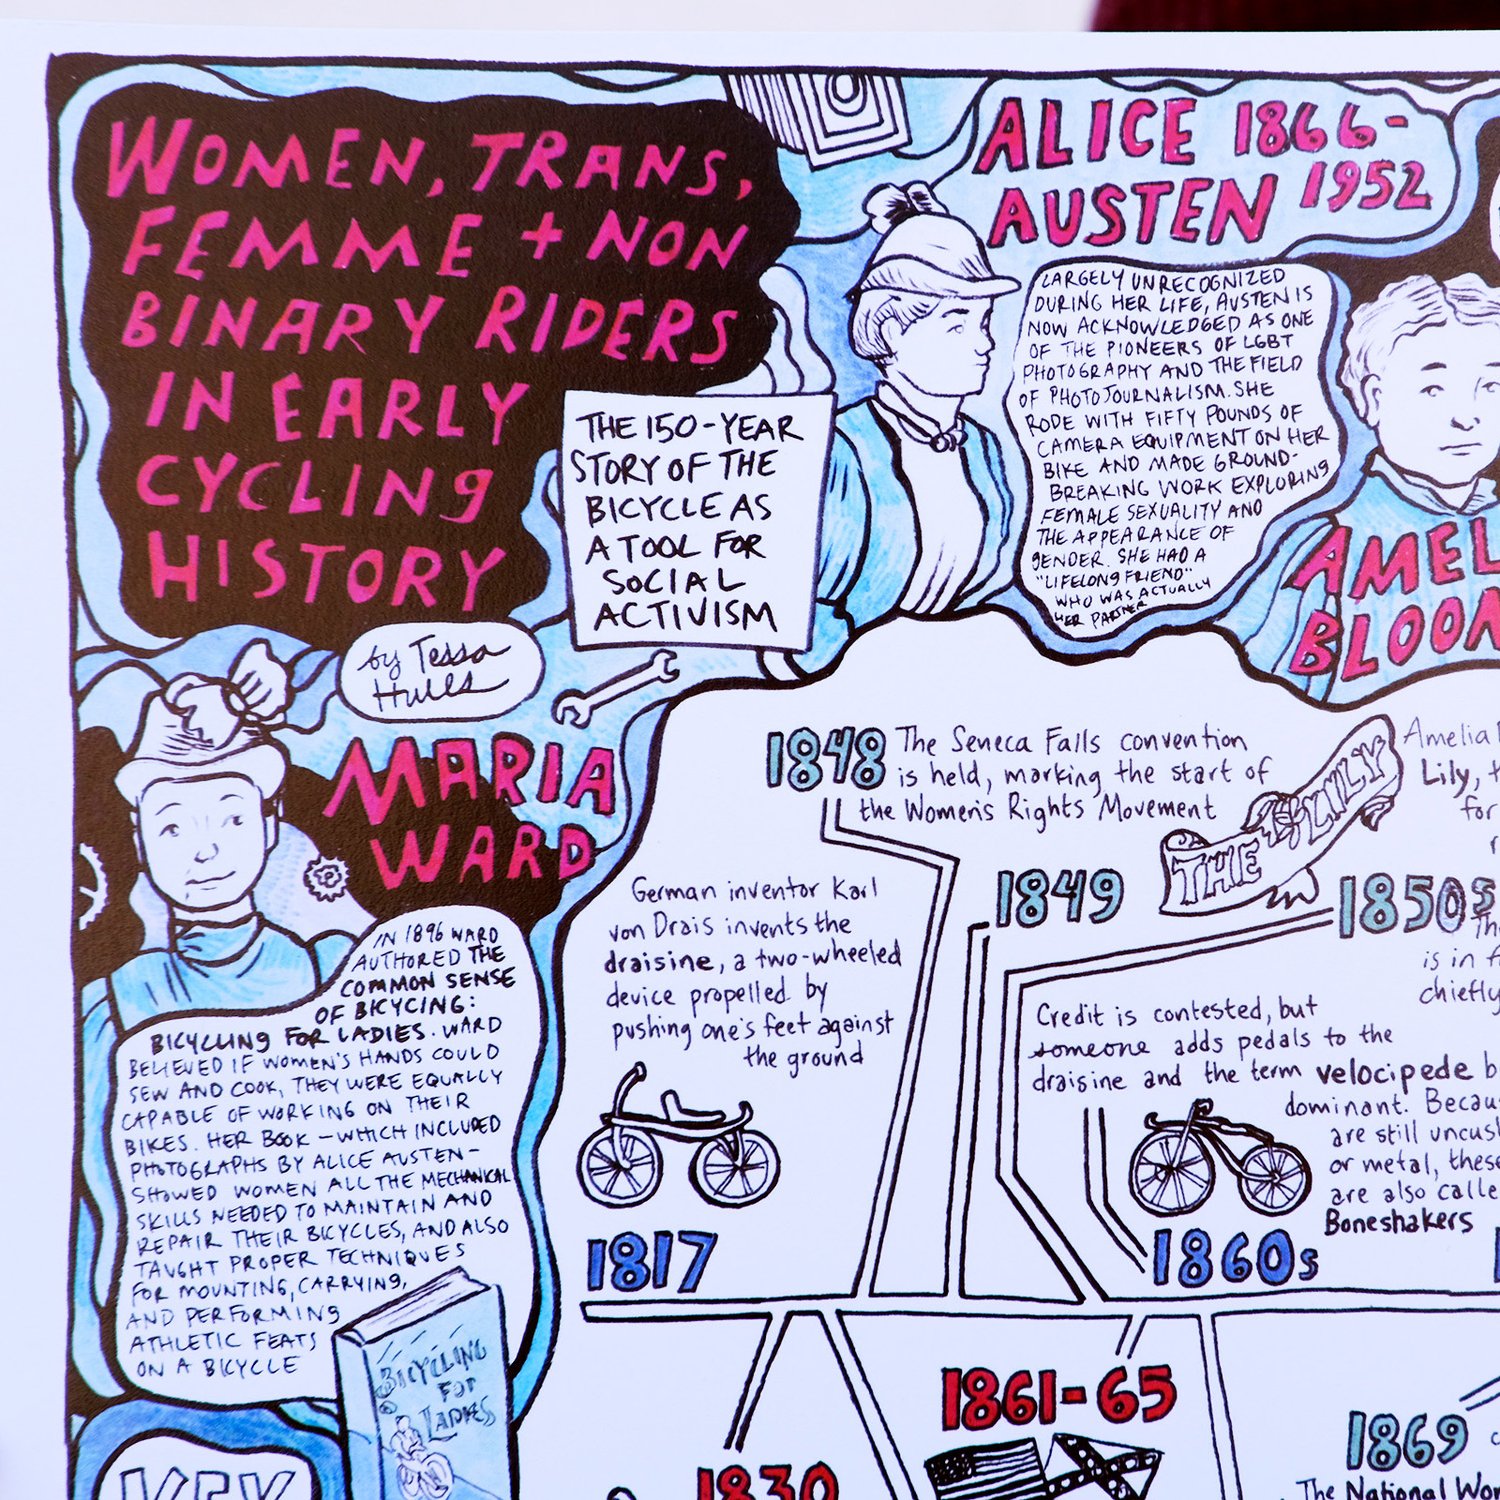 WOMEN, TRANS,
FEMME + NON
BINARY RIDERS
IN EARLY
CYCLING
HISTORY
THE 150-YEAR
STORY OF THE
BICYCLE AS
A TOOL FOR
SOCIAL
ACTIVISM
by Tessa
Hulls
ALICE 1866-
AUSTEN 1952
LARGELY UNRECOGNIZED
DURING HER LIFE, AUSTEN IS
NOW ACKNOWLEDGED AS ONE
OF THE PIONEERS OF LGBT
PHOTOGRAPHY AND THE FIELD
OF PHOTOJOURNALISM. SHE
RODE WITH FIFTY POUNDS OF
CAMERA EQUIPMENT ON HER
BIKE AND MADE GROUND-
BREAKING WORK EXPLORING
FEMALE SEXUALITY AND
THE APPEARANCE OF
GENDER. SHE HAD A
"LIFELONG FRIEND"
WHO WAS ACTUALLY
HER PARTNER
AMEL
BLOOM
MARIA
WARD
IN 1896 WARD
AUTHORED THE
COMMON SENSE
OF BICYCING:
BICYCLLING FOR LADIES. WARD
BELIEVED IF WOMEN'S HANDS COULD
SEW AND COOK, THEY WERE EQUALLY
CAPABLE OF WORKING ON THEIR
BIKES. HER BOOK - WHICH INCLUDED
PHOTOGRAPHS BY ALICE AUSTEN -
SHOWED WOMEN ALL THE MECHANICAL
SKILLS NEEDED TO MAINTAIN AND
REPAIR THEIR BICYCLES, AND ALSO
TAUGHT PROPER TECHNIQUES
FOR MOUNTING, CARRYING,
AND PERFORMING
ATHLETIC FEATS
ON A BICYCLE
BICYCLING
FOR
LADIES
KEY
1848 The Seneca Falls convention
is held, marking the start of
the Women's Rights Movement
THE LILY
Amelia
Lily, t
for
1849
1850s
Th
is in f
chiefly
German inventor Karl
von Drais invents the
draisine, a two-wheeled
device propelled by
pushing one's feet against
the ground
1817
Credit is contested, but
someone adds pedals to the
draisine and the term velocipede b
dominant. Becau
are still uncush
or metal, these
are also calle
Boneshakers
1860s
1861-65
1830
1869
The National Wor